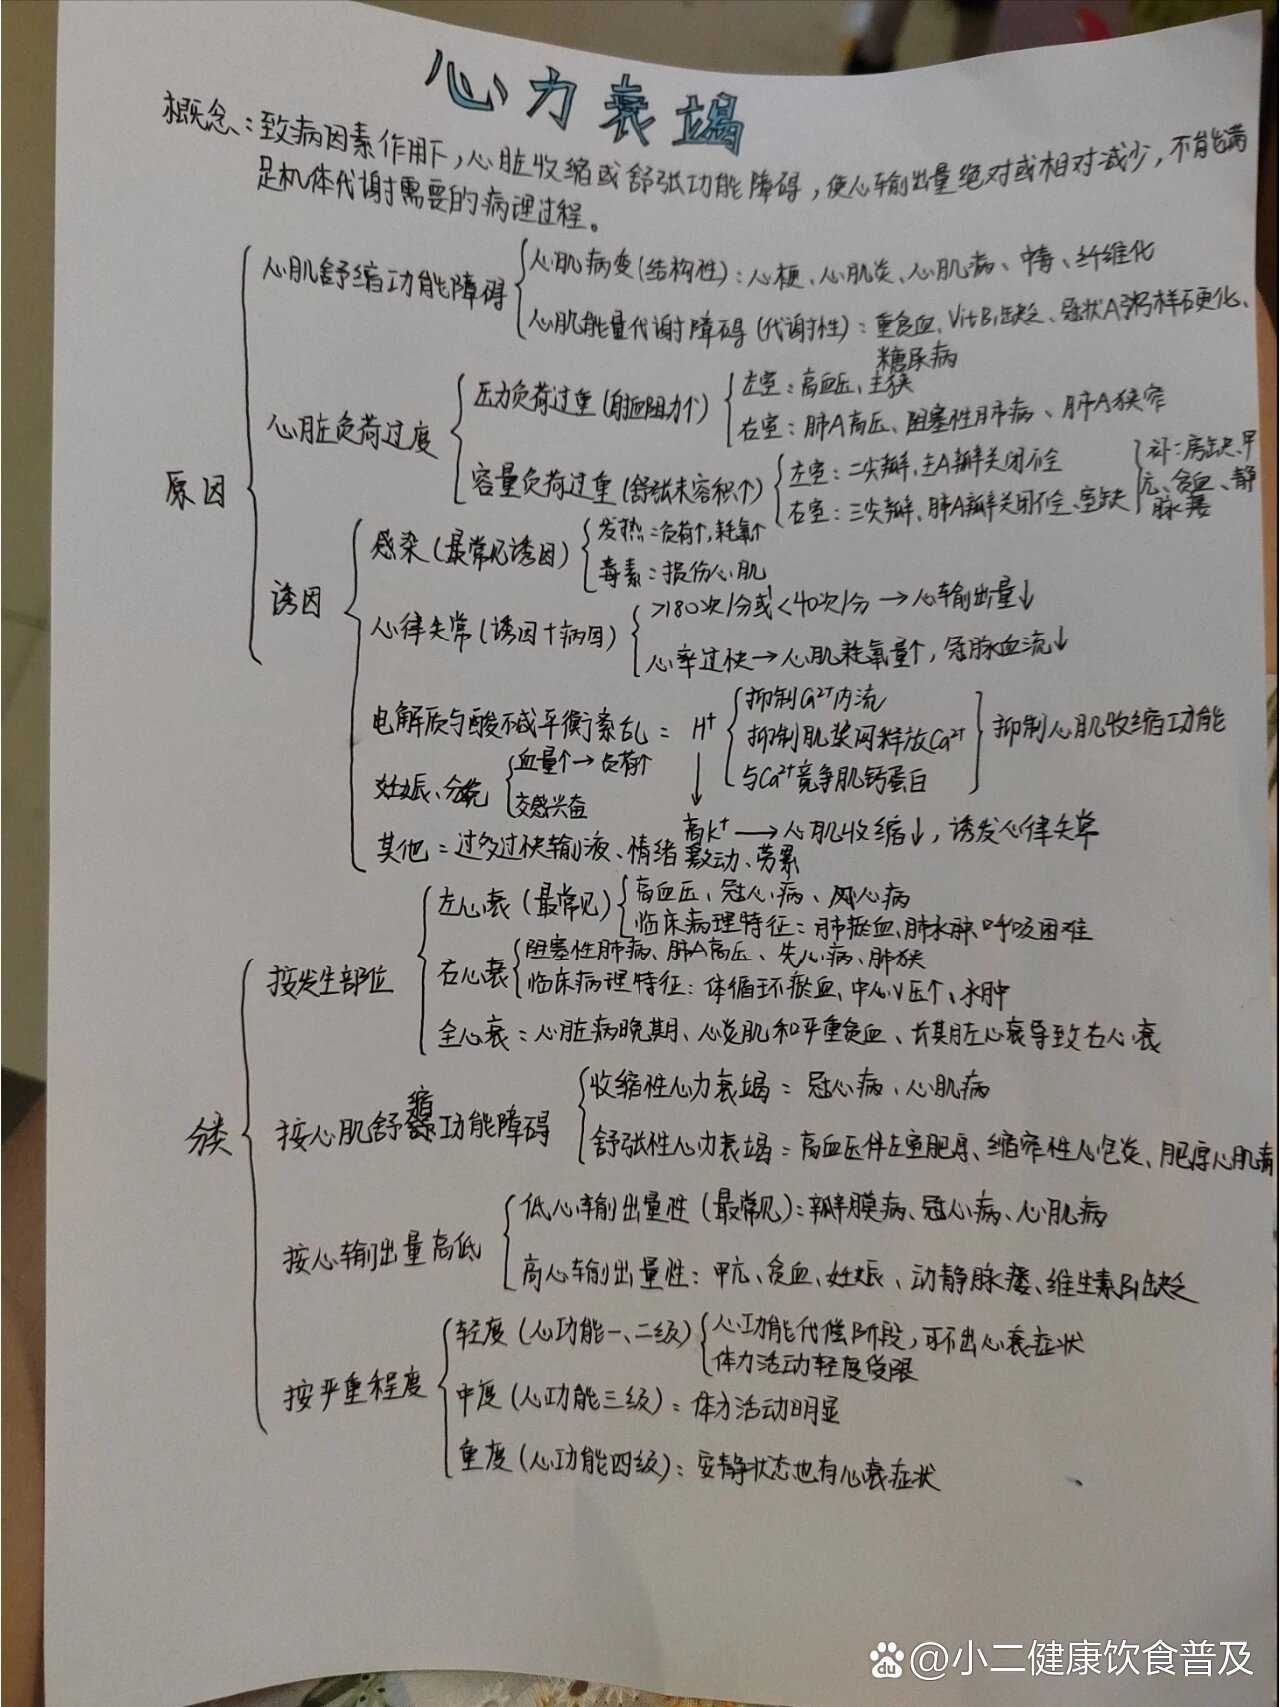 心力衰竭
概念:致病因素作用下,心脏收缩或舒张功能障碍,使心输出量绝对或相对减少,不能满
足机体代谢需要的病理过程。
原因
心肌舒缩功能障碍
心肌病变(结构性):心梗、心肌炎、心肌病、中毒、纤维化
心肌能量代谢障碍(代谢性):重贫血、VitB₁缺乏、冠状A粥样硬化、
糖尿病
心脏负荷过度
压力负荷过重(射血阻力↑)
左室:高血压、主狭
右室:肺A高压、阻塞性肺病、肺A狭窄
容量负荷过重(舒张末容积↑)
左室:二尖瓣、主A瓣关闭不全
右室:三尖瓣、肺A瓣关闭不全、室缺
补:房缺、甲
亢、贫血、静
脉瘘
诱因
感染(最常见诱因)
发热:负荷↑,耗氧↑
毒素:损伤心肌
心律失常(诱因+病因)
>180次/分或<40次/分→心输出量↓
心率过快→心肌耗氧量↑,冠脉血流↓
电解质与酸碱平衡紊乱:H⁺
抑制Ca²⁺内流
抑制肌浆网释放Ca²⁺
与Ca²⁺竞争肌钙蛋白
抑制心肌收缩功能
高K⁺→心肌收缩↓,诱发心律失常
妊娠、分娩
血量↑→负荷↑
交感兴奋
其他:过多过快输液、情绪激动、劳累
分类
按发生部位
左心衰(最常见)
高血压、冠心病、风心病
临床病理特征:肺瘀血、肺水肿、呼吸困难
右心衰
阻塞性肺病、肺A高压、先心病、肺狭
临床病理特征:体循环瘀血、中心V压↑、水肿
全心衰:心脏病晚期、心炎肌和严重贫血、长期左心衰导致右心衰
按心肌舒缩功能障碍
收缩性心力衰竭:冠心病、心肌病
舒张性心力衰竭:高血压伴左室肥厚、缩窄性心包炎、肥厚心肌病
按心输出量高低
低心输出量性(最常见):瓣膜病、冠心病、心肌病
高心输出量性:甲亢、贫血、妊娠、动静脉瘘、维生素B₁缺乏
按严重程度
轻度(心功能一、二级)
心功能代偿阶段,可不出心衰症状
体力活动轻度受限
中度(心功能三级):体力活动明显
重度(心功能四级):安静状态也有心衰症状
du @小二健康饮食普及